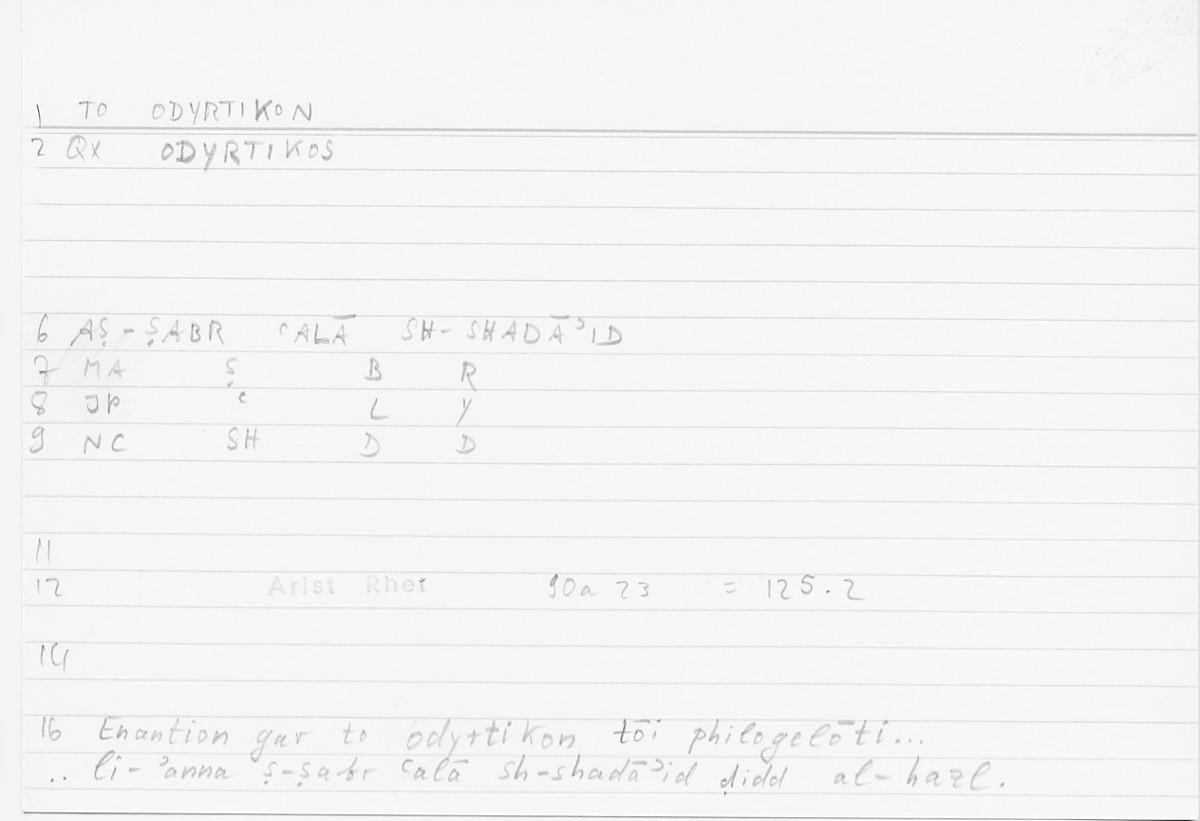 1 TO ODYRTIKON
2 QX ODYRTIKOS
6 AṢ-ṢABR ʿALĀ SH-SHADĀʾID
7 MA Ṣ B R
8 JP ʿ L Y
9 NC SH D D
11
12 Arist Rhet 90a 23 = 125.2
14
16 Enantion gar to odyrtikon tōi philogelōti...
.. li-ʾanna ṣ-ṣabr ʿalā sh-shadāʾid ḍidd al-hazl.